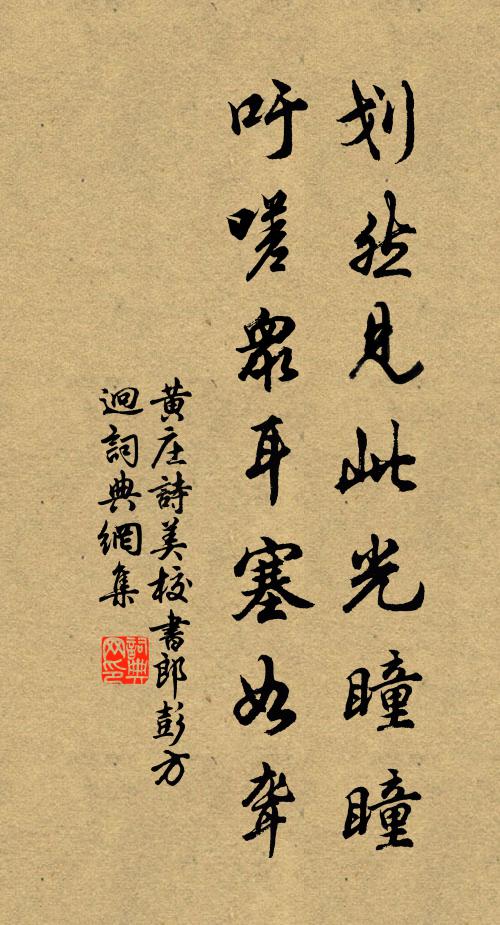 划然見此光瞳瞳
吁嗟眾耳塞如聾
黄庄詩美校書郎彭方
迥詞典網集
詞典网印